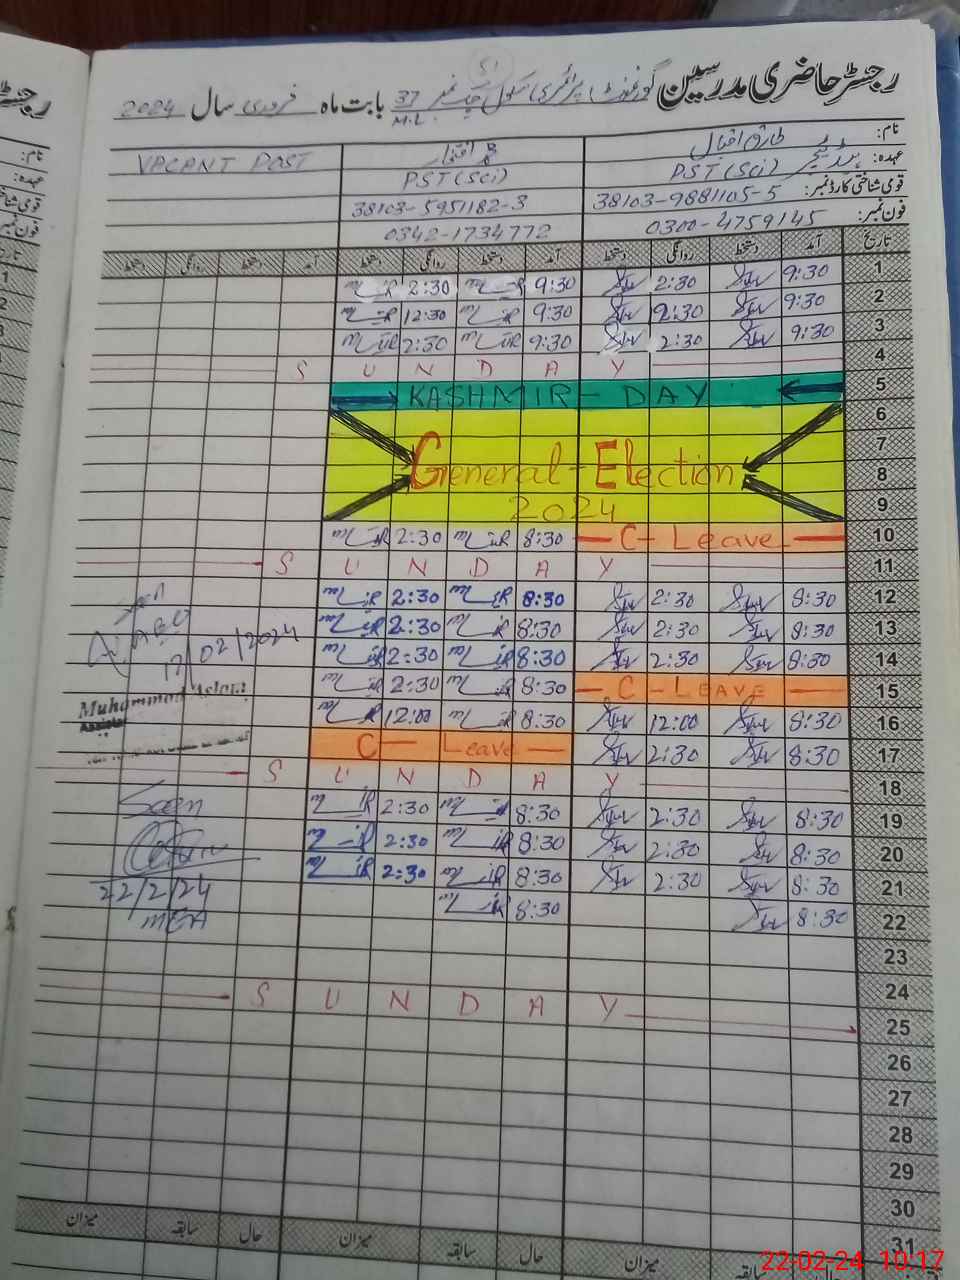 رجسٹر حاضری مدرسین گورنمنٹ پرائمری سکول چک نمبر 37 بابت ماہ فروری سال 2024
51
M.L.
نام: طارق اقبال
VACANT POST
عہدہ: PST (Sci) PST (Sci)
قومی شناختی کارڈ نمبر: 38103-9881105-5 38103-5951182-3
فون نمبر: 0300-4759145 0342-1734772
تاریخ آمد دستخط روانگی دستخط آمد دستخط روانگی دستخط آمد دستخط روانگی دستخط
1 9:30 2:30 9:30 2:30
2 9:30 2:30 9:30 12:30
3 9:30 2:30 9:30 2:30
4 SUNDAY
5 KASHMIR - DAY
6
7
8 General - Election
9 2024
10 C - Leave 8:30 2:30
11 SUNDAY
12 8:30 2:30 8:30 2:30
13 8:30 2:30 8:30 2:30
14 8:30 2:30 8:30 2:30
15 C - LEAVE 8:30 2:30
16 8:30 12:00 8:30 12:00
17 8:30 2:30 C - Leave
18 SUNDAY
19 8:30 2:30 8:30 2:30
20 8:30 2:30 8:30 2:30
21 8:30 2:30 8:30 2:30
22 8:30 8:30
23
24
25 SUNDAY
26
27
28
29
30
31
Seen
AEO
17/02/2024
Muhammad Aslam
Seen
22/2/24
MEA
حال سابقہ میزان حال سابقہ میزان حال سابقہ میزان
22-02-24 10:17